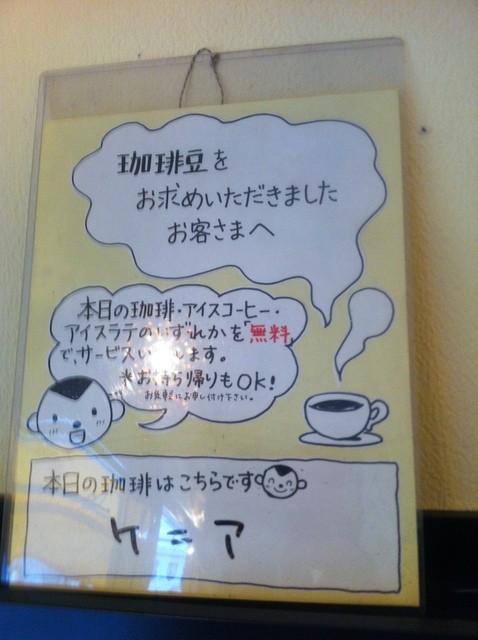 珈琲豆を
お求めいただきました
お客さまへ
本日の珈琲・アイスコーヒー・
アイスラテのいずれかを「無料」
で、サービスい します。
※お持ち帰りもOK!
お気軽にお申し付け下さい。
本日の珈琲はこちらです
ケニア